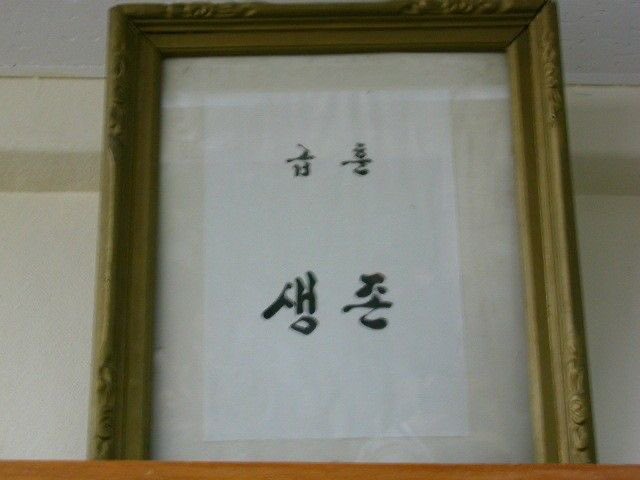 급 훈
생 존